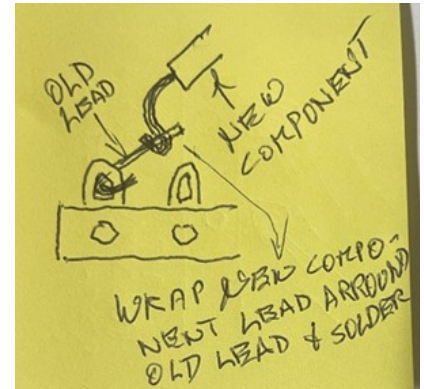 OLD
LEAD
NEW
COMPONENT
WRAP NEW COMPO-
NENT LEAD ARROUND
OLD LEAD & SOLDER